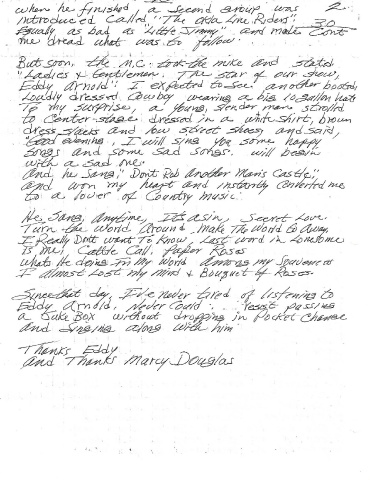 when he finished, a second group, was 2
introduced called "The Line Riders" 30
Equally as bad as "Little Jimmy" and made Cont
me dread what was to follow.
But soon, the M.C. took the mike and stated
"Ladies & Gentlemen. The star of our show,
Eddy Arnold". I expected to see another booted,
Loudly dressed Cowboy wearing a big 10 gallon hat.
To my surprise, a young, slender man strolled
to Center-stage dressed in a white shirt, brown
dress slacks and low street shoes, and said,
"Good evening, I will sing you some happy
songs and some sad songs. will begin
with a sad one.
And he sang, "Don't Rob Another Man's Castle,"
and won my heart and instantly converted me
to a lover of Country music.
He sang, Anytime, It's a sin, Secret Love.
Turn the World Around, Make The World Go Away,
I Really Don't Want To Know, Last word in Lonesome
is Me, Cattle Call, Paper Roses
What's He doing in My World Among my Souvenirs
I Almost Lost my Mind & Bouquet of Roses.
Since that day, I've never tired of listening to
Eddy Arnold. Never could. passing
a Juke Box without dropping in Pocket Change
and singing along with him.
Thanks Eddy
and Thanks Marcy Douglas